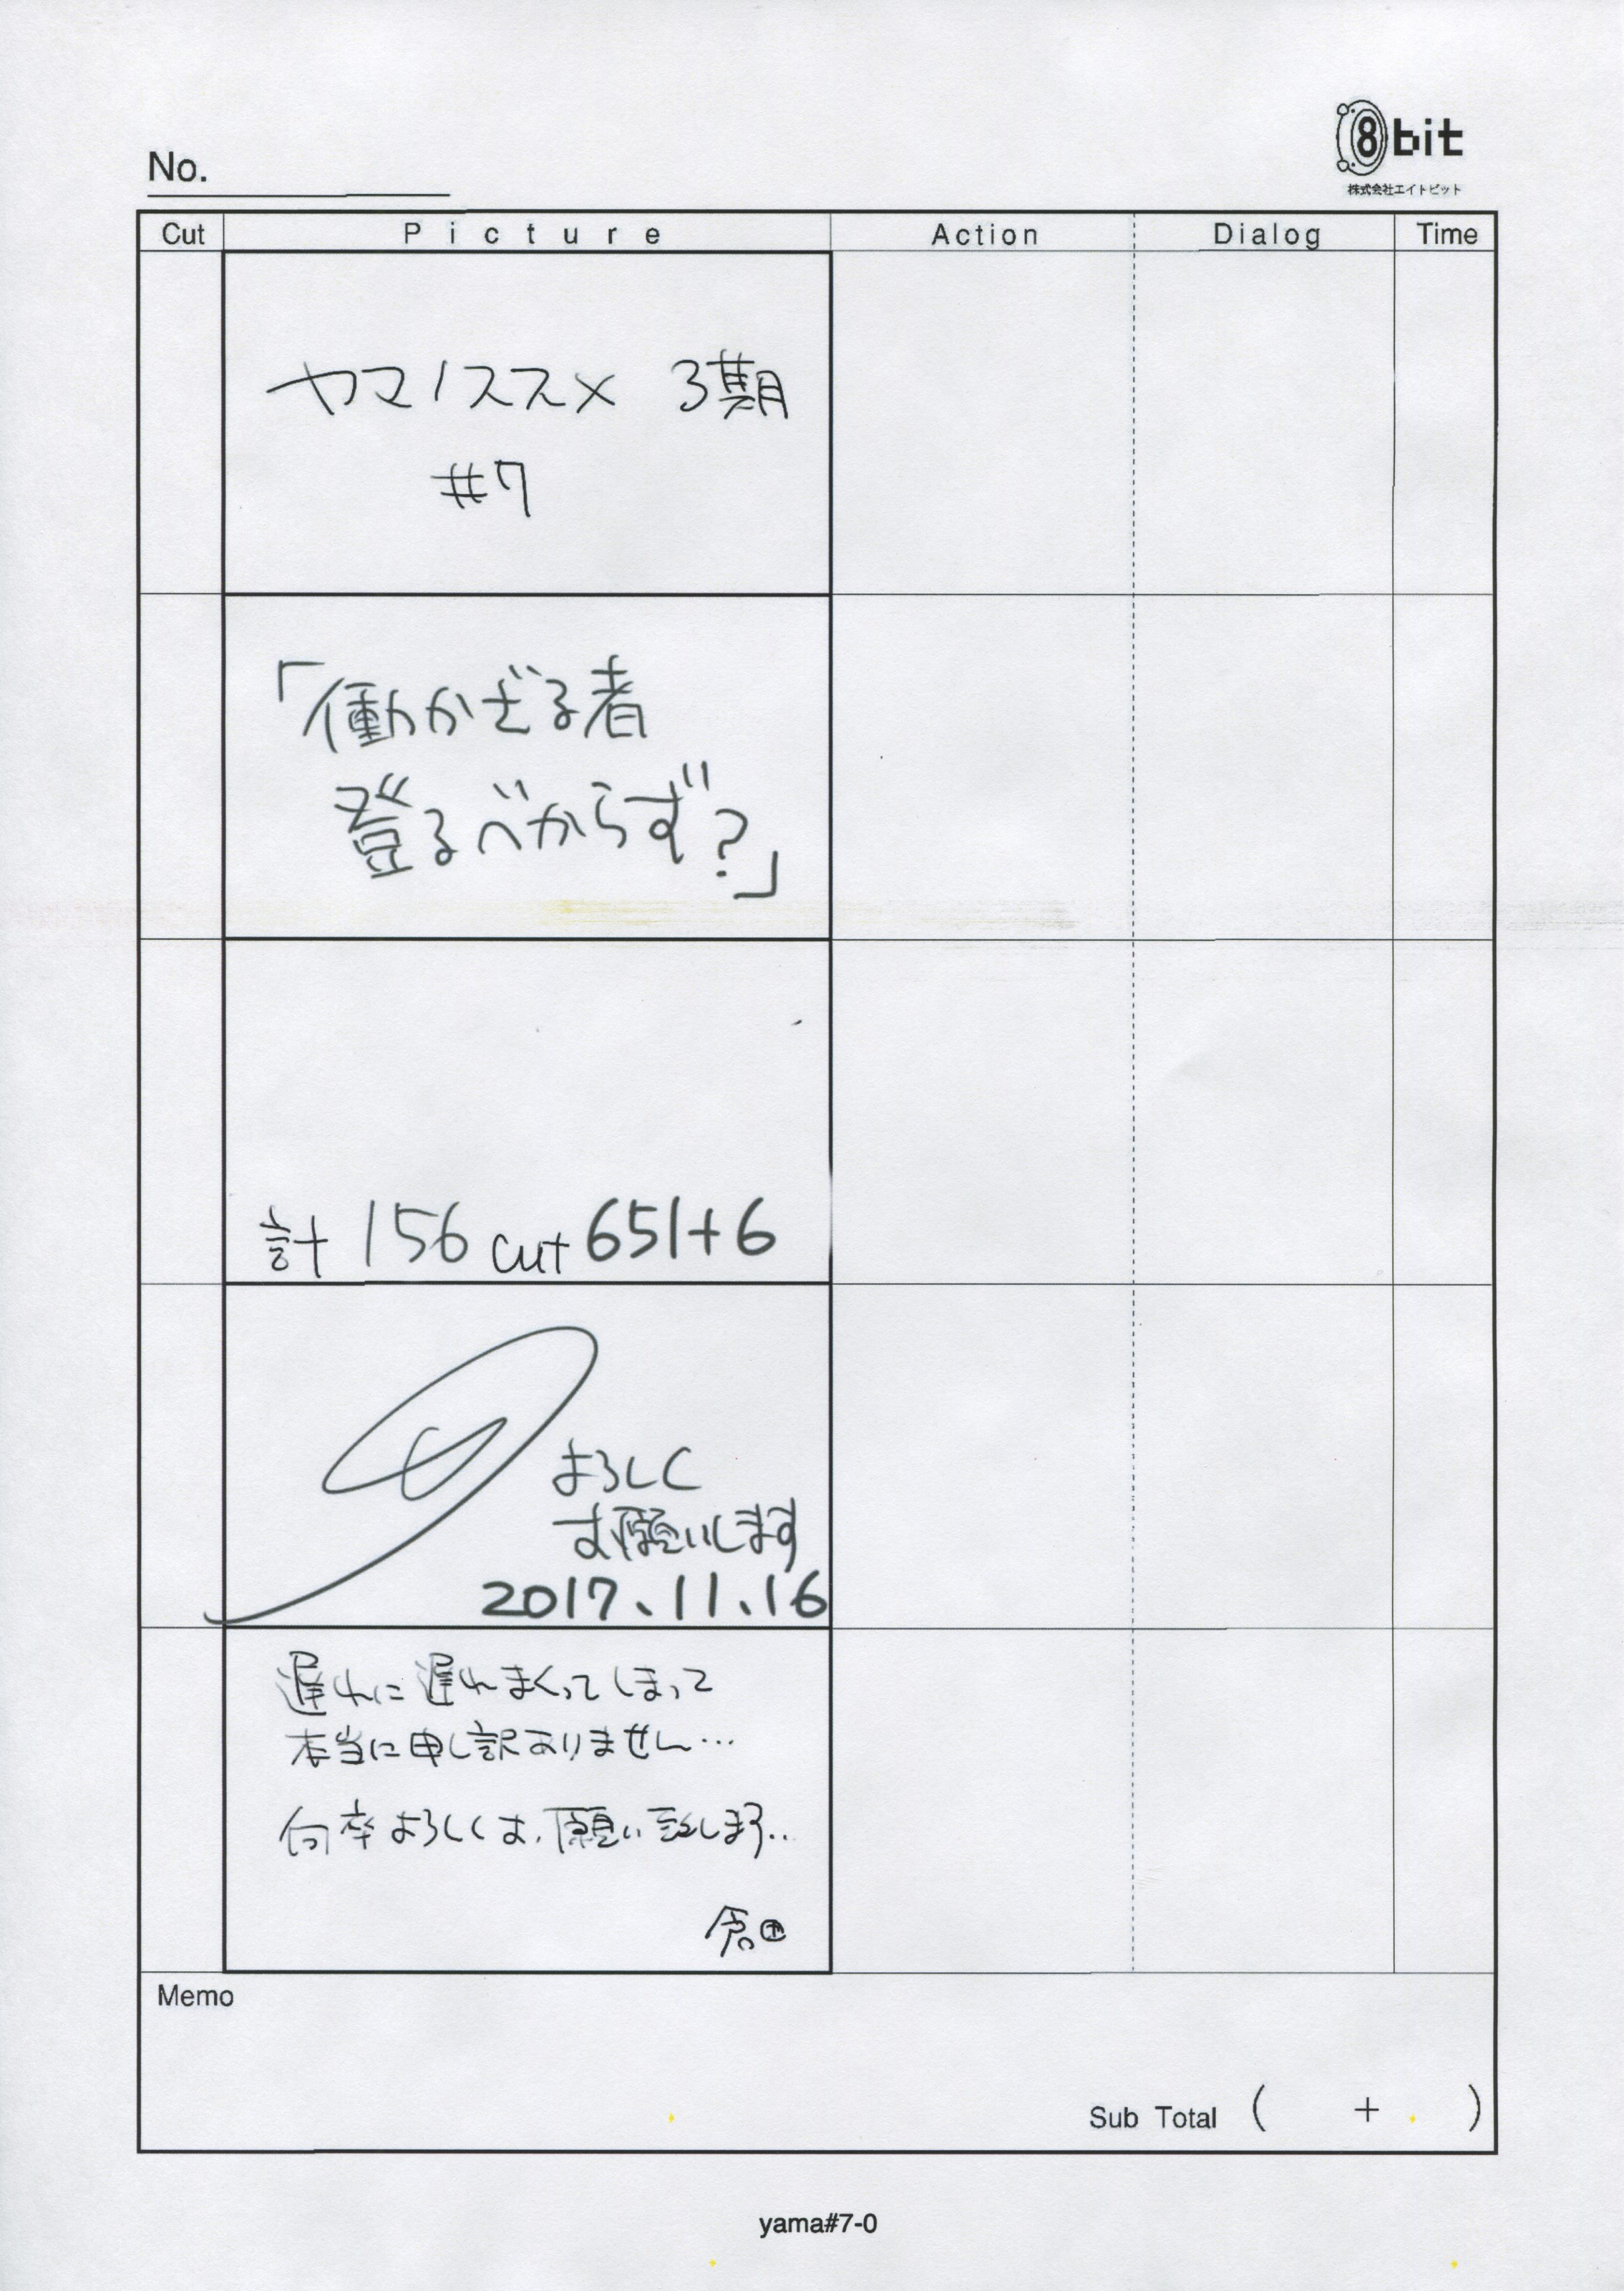 No.
8bit
株式会社エイトビット
Cut Picture Action Dialog Time
ヤマノススメ 3期
#7
「働かざる者
登るべからず?」
計 156 cut 651+6
よろしく
お願いします
2017.11.16
遅れに遅れまくってしまって
本当に申し訳ありません…
何卒よろしくお願い致します…
倉田
Memo
Sub Total ( + )
yama#7-0